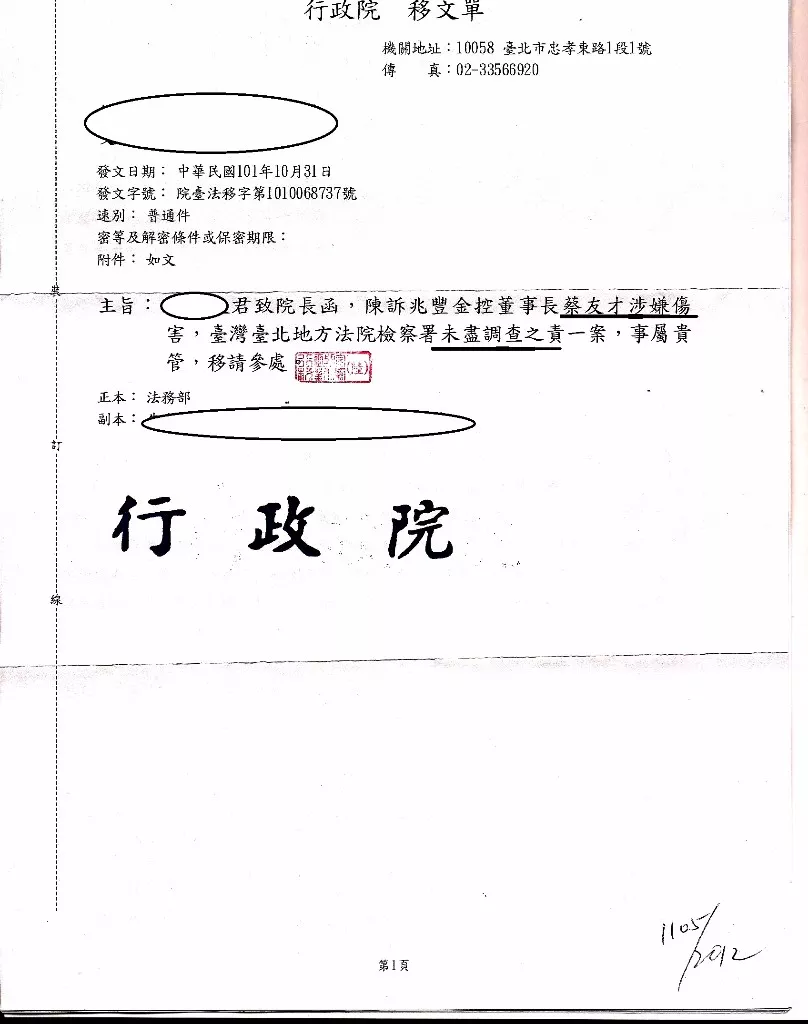 行政院　移文單
機關地址：10058 臺北市忠孝東路1段1號
傳　　真：02-33566920
發文日期：中華民國101年10月31日
發文字號：院臺法移字第1010068737號
速別：普通件
密等及解密條件或保密期限：
附件：如文
裝
主旨：君致院長函，陳訴兆豐金控董事長蔡友才涉嫌傷
害，臺灣臺北地方法院檢察署未盡調查之責一案，事屬貴
管，移請參處
正本：法務部
副本：
訂
行政院
線
1105/2012
第1頁